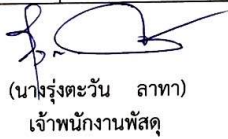 (นางรุ่งตะวัน ลาทา)
เจ้าพนักงานพัสดุ